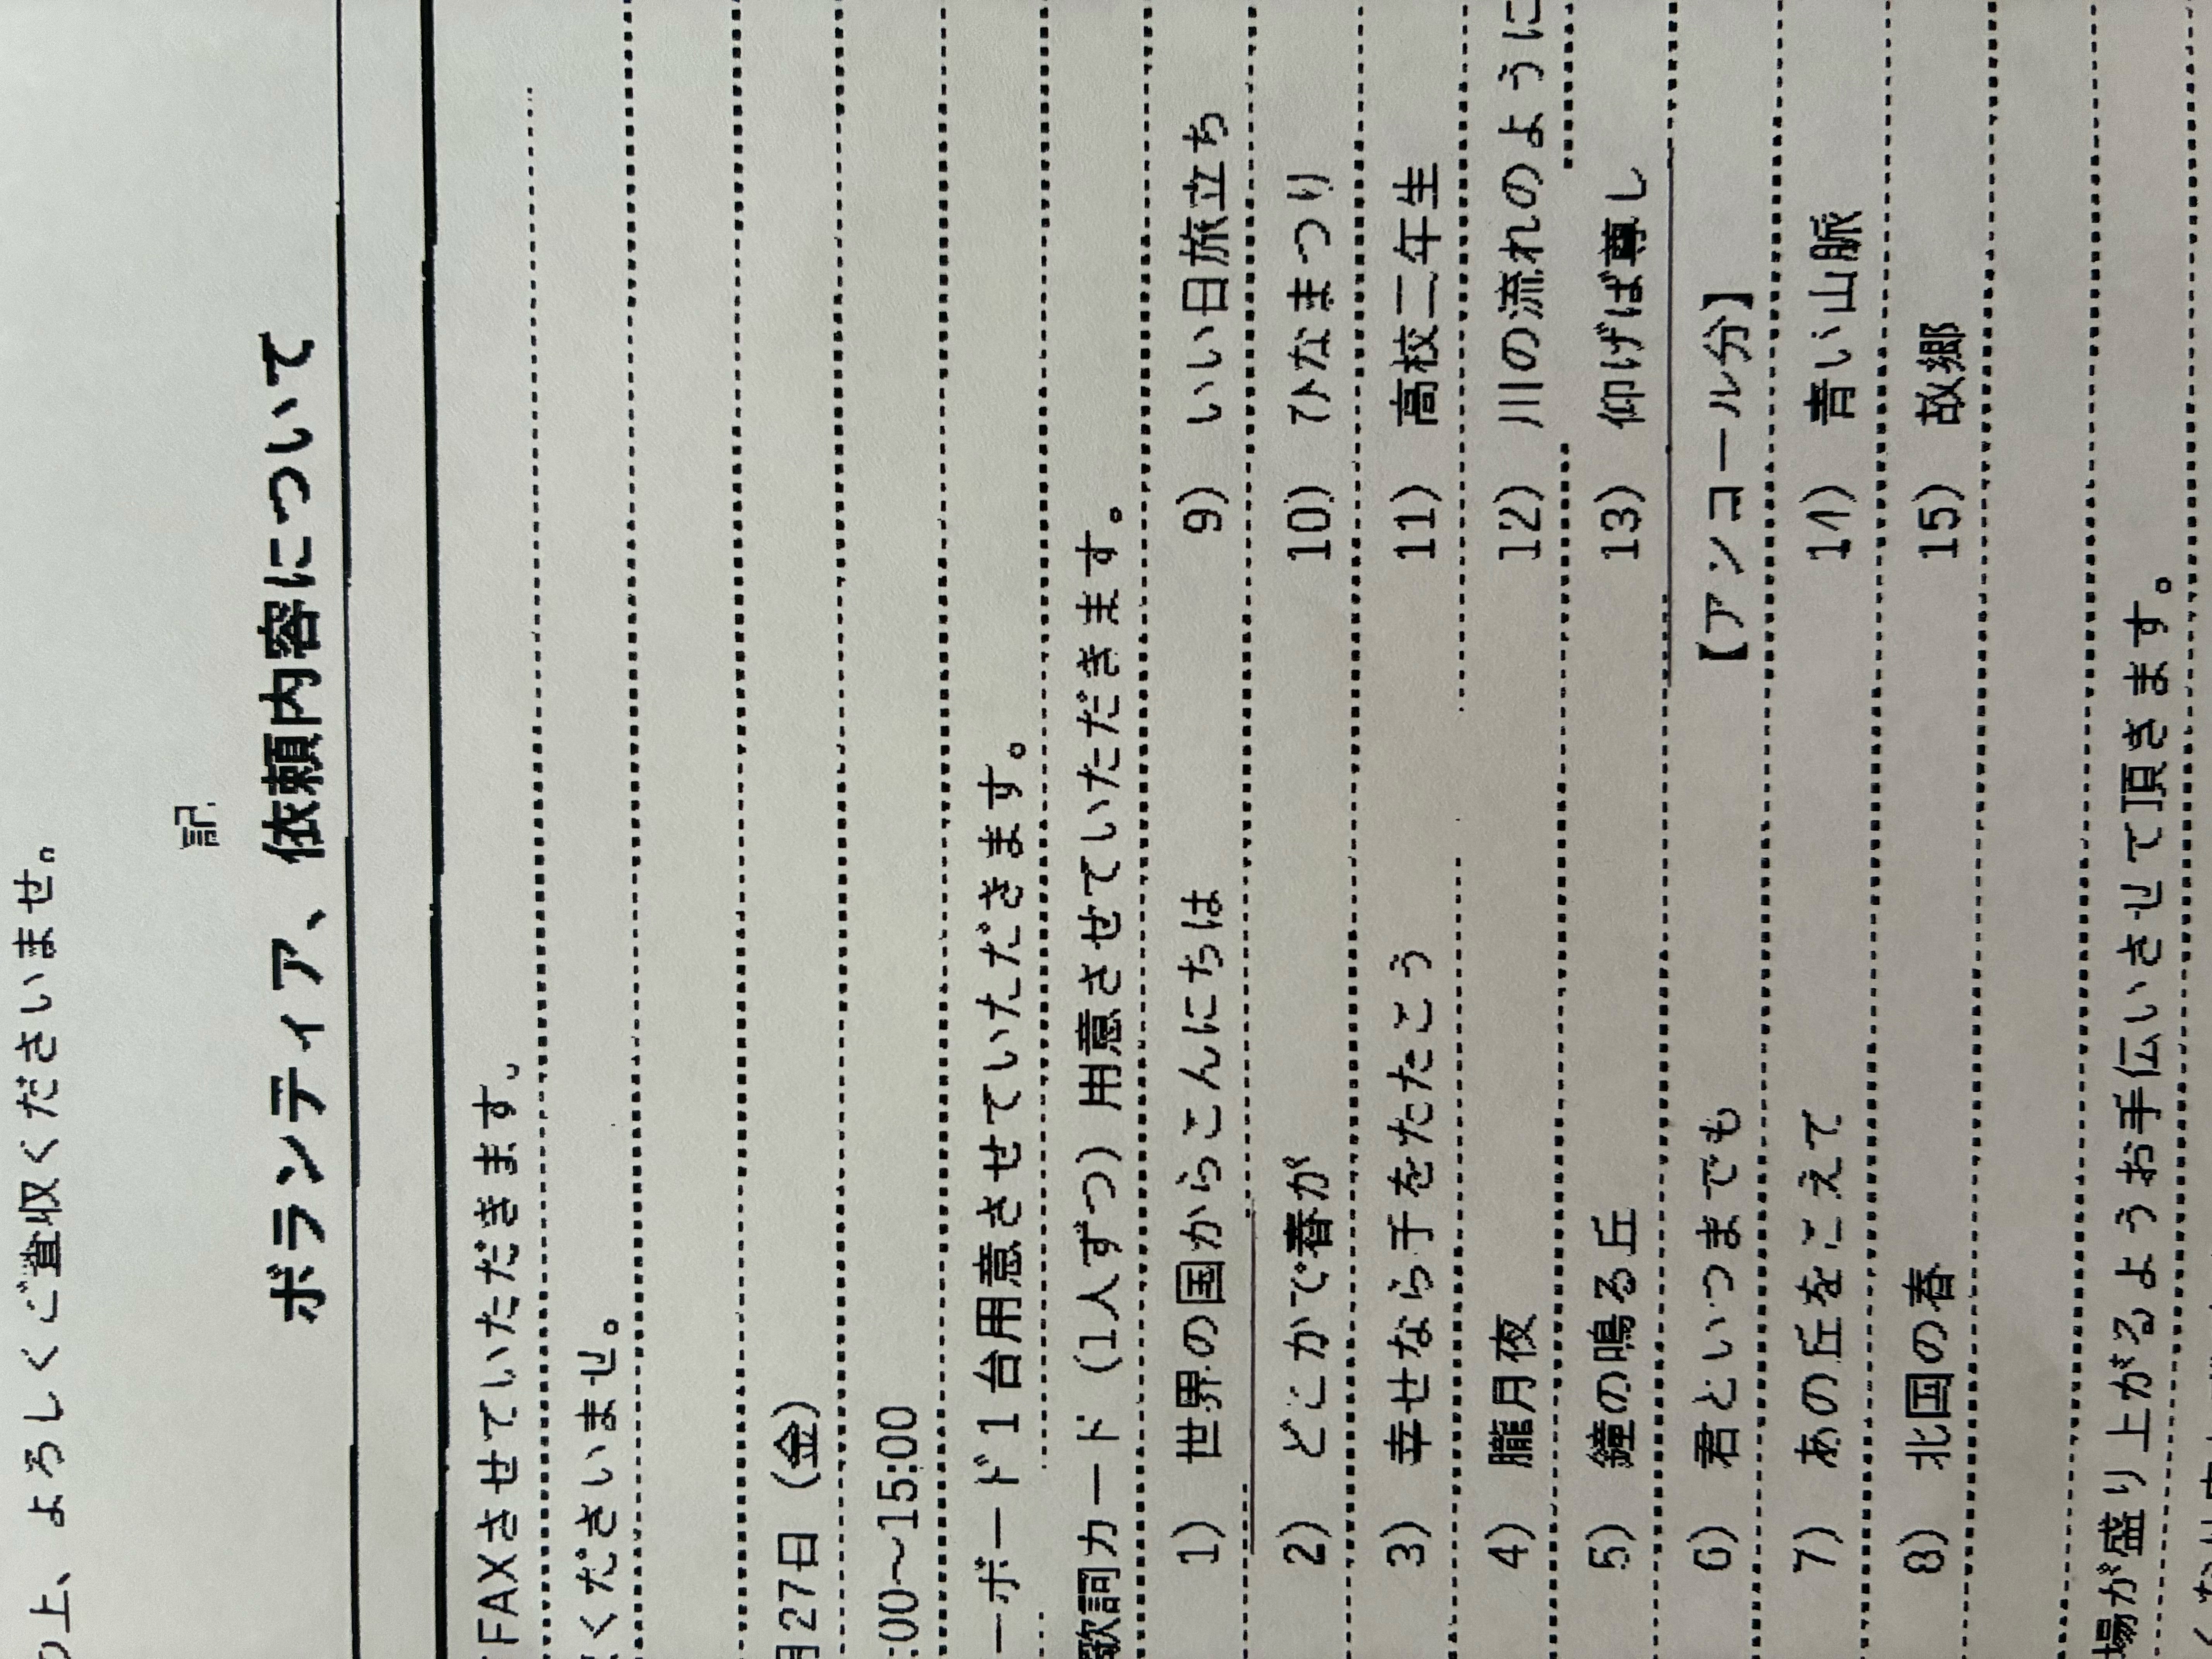 の上、よろしくご査収くださいませ。
記
ボランティア、依頼内容について
FAXさせていただきます。
くださいませ。
月27日（金）
:00～15:00
ーボード1台用意させていただきます。
歌詞カード（1人ずつ）用意させていただきます。
1） 世界の国からこんにちは 9） いい日旅立ち
2） どこかで春が 10） ひなまつり
3）幸せなら手をたたこう 11） 高校三年生
4） 朧月夜 12） 川の流れのように
5） 鐘の鳴る丘 13） 仰げば尊し
6） 君といつまでも 【アンコール分】
7） あの丘をこえて 14） 青い山脈
8） 北国の春 15） 故郷
場が盛り上がるようお手伝いさせて頂きます。